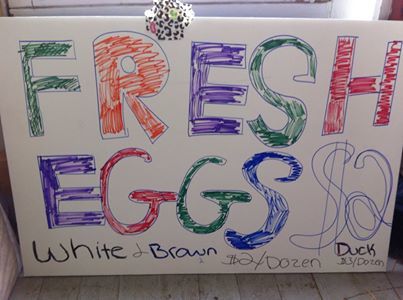 FRESH
EGGS $2
White & Brown $2/Dozen Duck
$3/Dozen